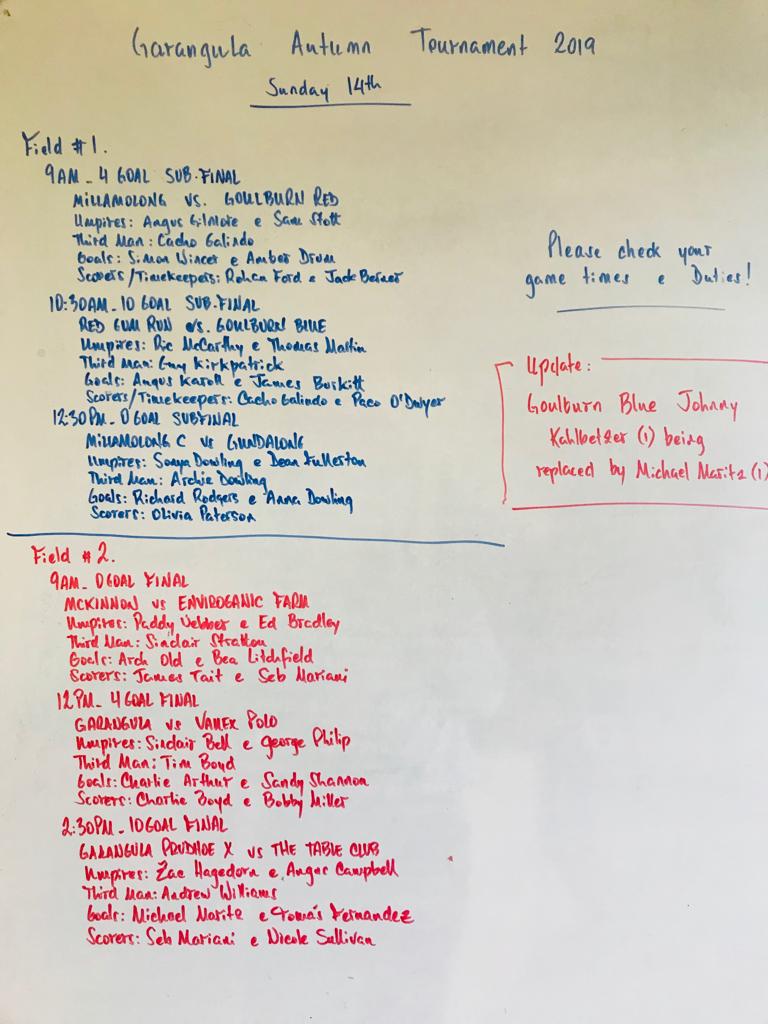 Garangula Autumn Tournament 2019
Sunday 14th
Field #1.
9AM_ 4 GOAL SUB.FINAL
MILLAMOLONG VS. GOULBURN RED
Umpires: Angus Gilmore e Sam Stott
Third Man: Cacho Galindo
Goals: Simon Wincer e Amber Drum
Scorers/Timekeepers: Rohan Ford e Jack Berner
10:30AM_10 GOAL SUB.FINAL
RED GUM RUN vs. GOULBURN BLUE
Umpires: Ric McCarthy e Thomas Martin
Third Man: Guy Kirkpatrick
Goals: Angus Karoll e James Burkitt
Scorers/Timekeepers: Cacho Galindo e Paco O'Dwyer
12:30PM_ 0 GOAL SUBFINAL
MILLAMOLONG C vs GUNDALONG
Umpires: Sonya Dowling e Dean Fullerton
Third Man: Archie Dowling
Goals: Richard Rodgers e Anna Dowling
Scorers: Olivia Paterson
Please check your
game times e Duties!
Update:
Goulburn Blue Johnny
Kahlbetzer (1) being
replaced by Michael Maritz (1)
Field #2.
9AM_ 0 GOAL FINAL
MCKINNON vs ENVIROGANIC FARM
Umpires: Paddy Webber e Ed Bradley
Third Man: Sinclair Stratton
Goals: Arch Old e Bea Litchfield
Scorers: James Tait e Seb Mariani
12PM_ 4 GOAL FINAL
GARANGULA vs VAMEX POLO
Umpires: Sinclair Bell e George Philip
Third Man: Tim Boyd
Goals: Charlie Arthur e Sandy Shannon
Scorers: Charlie Boyd e Bobby Miller
2:30PM_10 GOAL FINAL
GARANGULA PRUDHOE X vs THE TABLE CLUB
Umpires: Zac Hagedorn e Angus Campbell
Third Man: Andrew Williams
Goals: Michael Maritz e Tomás Fernandez
Scorers: Seb Mariani e Nicole Sullivan